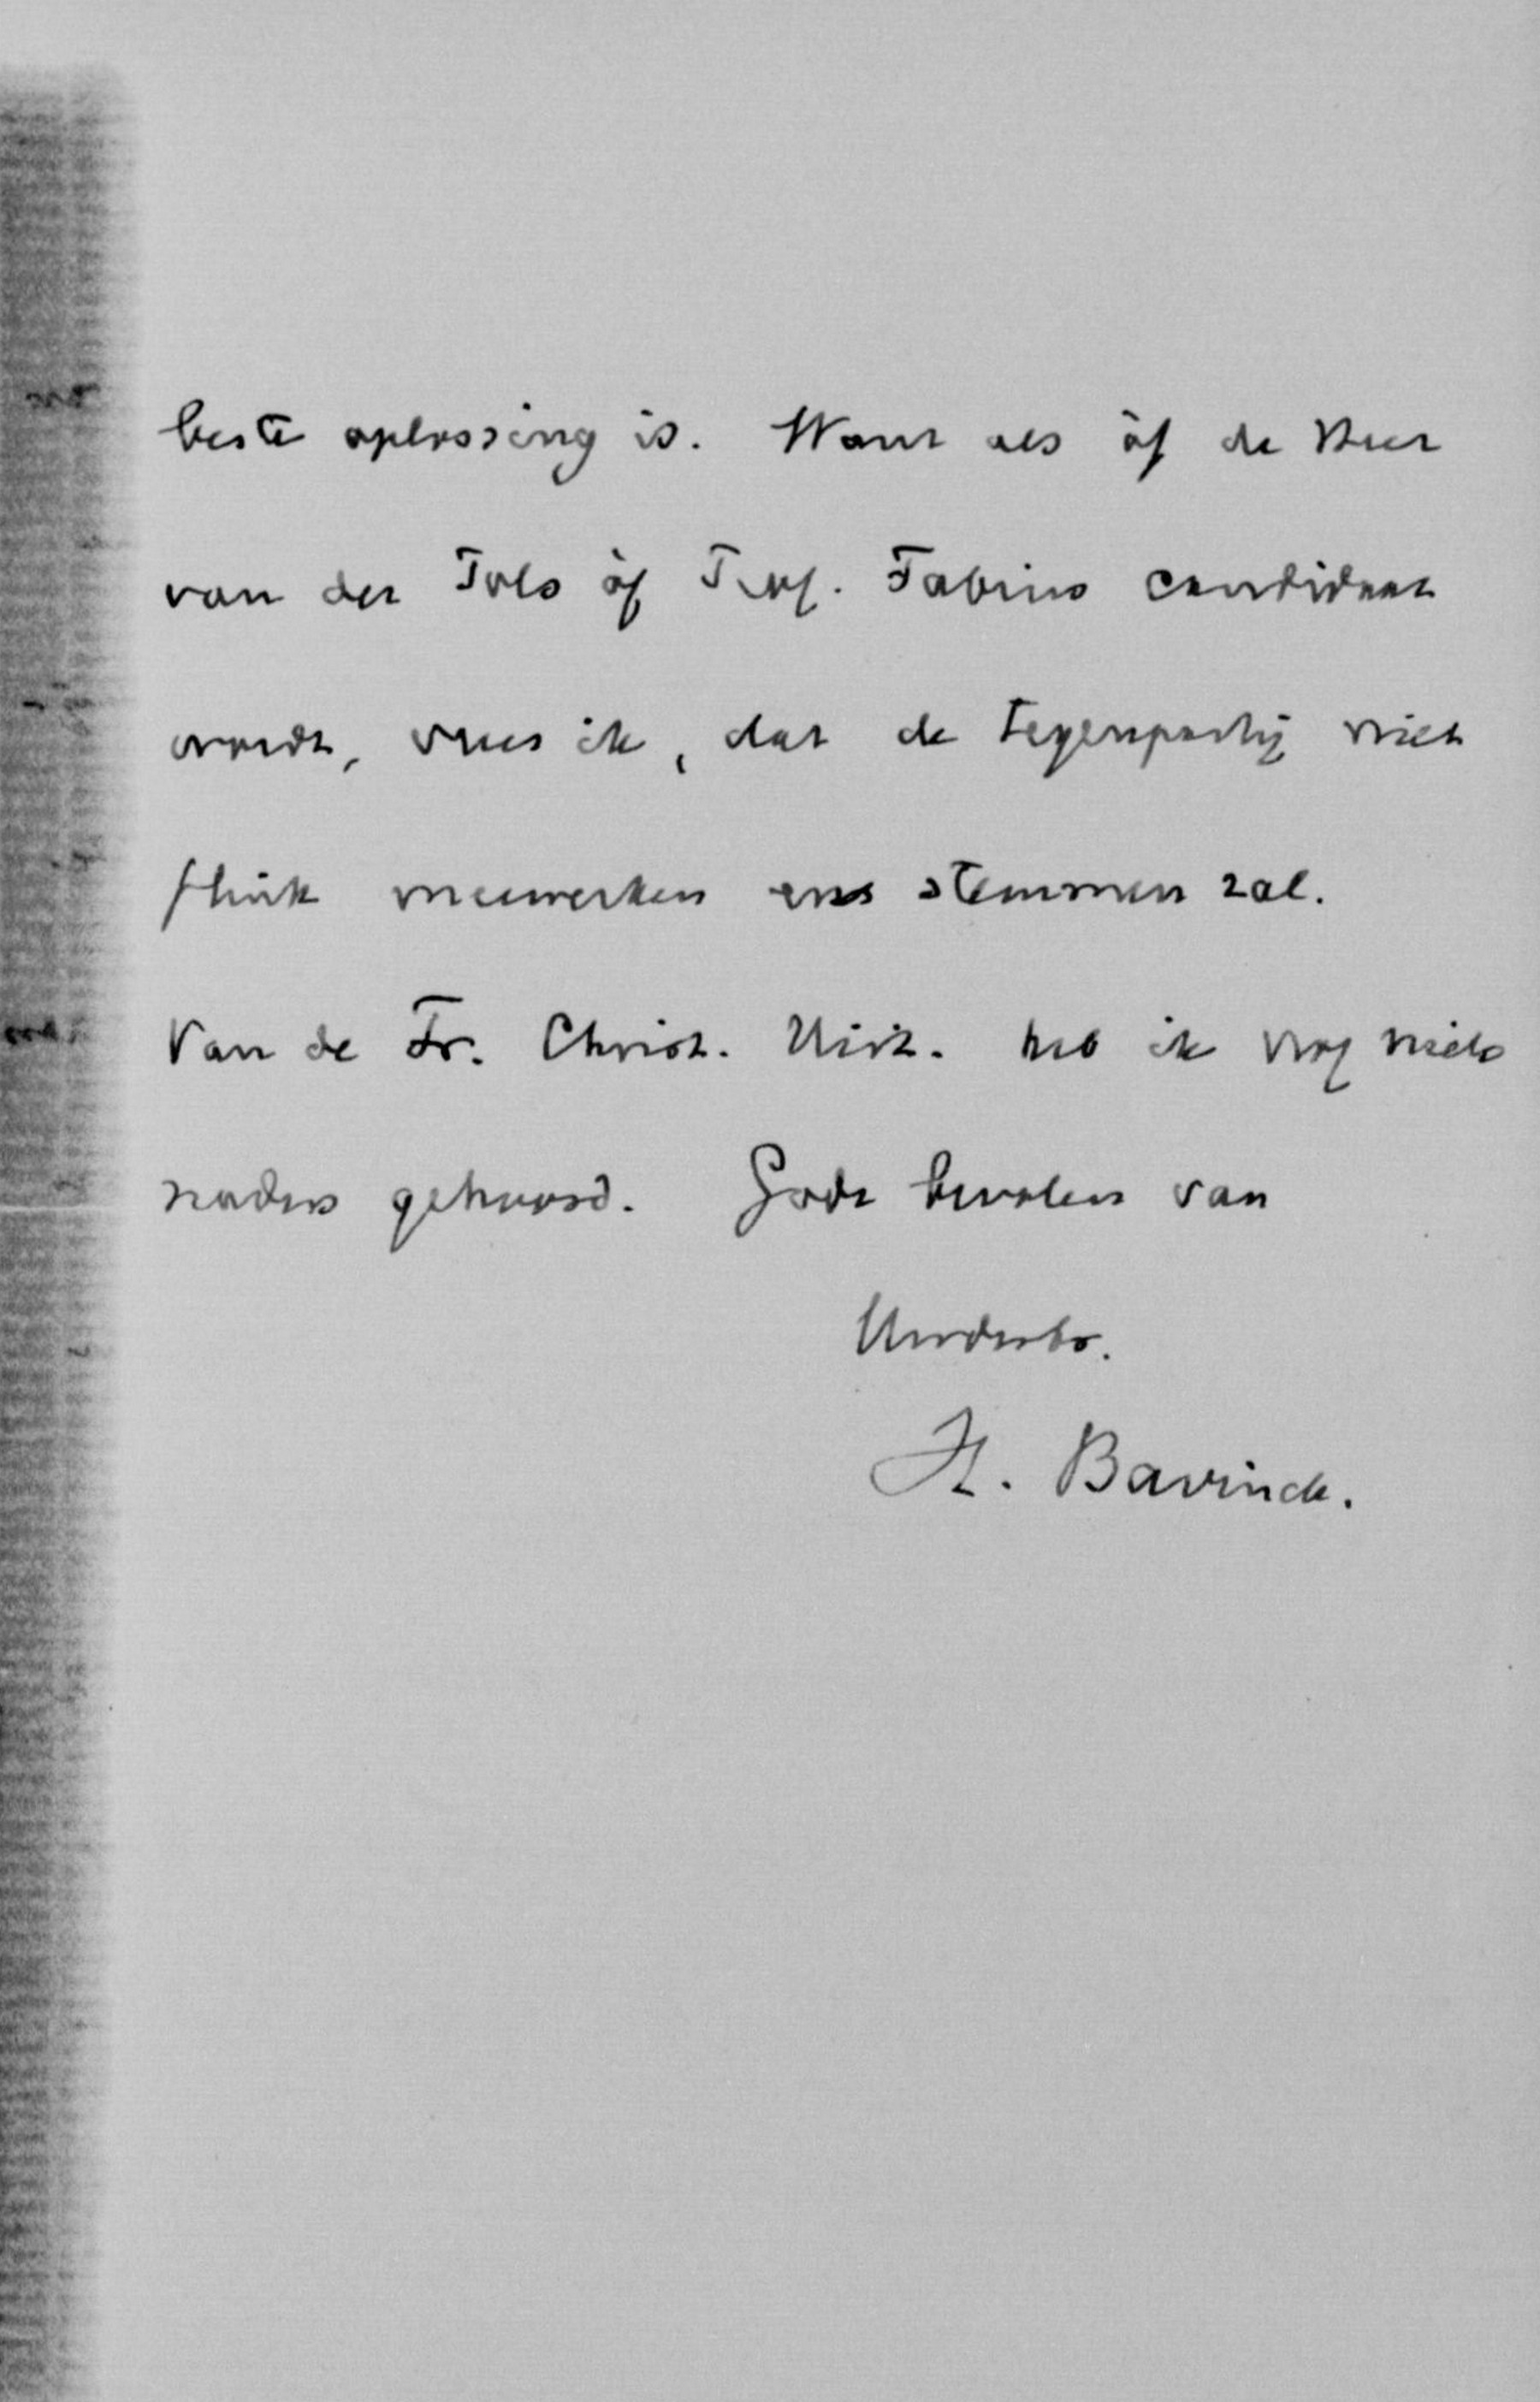 beste oplossing is. Want als òf de Heer
van der Tols òf Prof. Fabius candidaat
wordt, vrees ik, dat de tegenpartij niet
flink meewerken en stemmen zal.
Van de Fr. Christ. Hist. heb ik nog niets
naders gehoord. Gode bevolen van
Uwdwbr.
H. Bavinck.